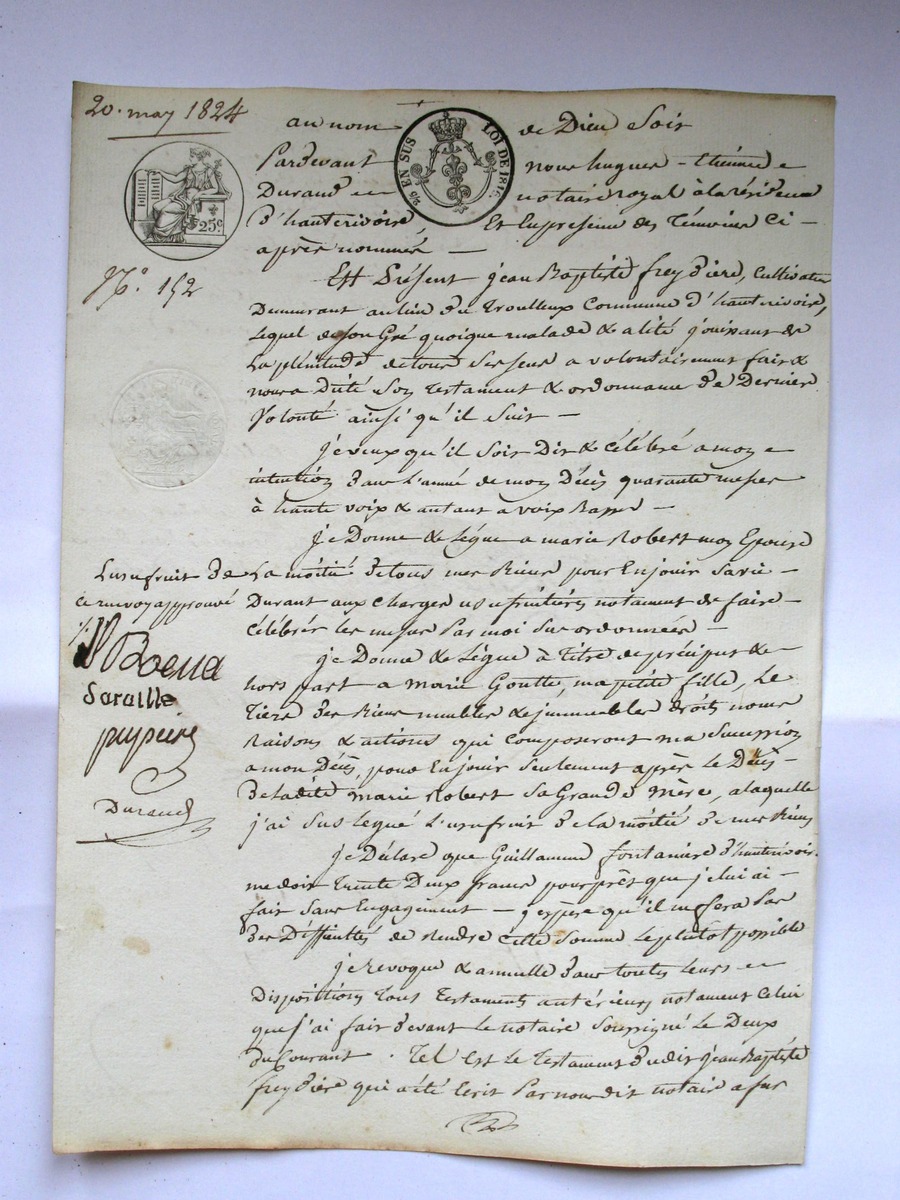 20. may 1824
au nom de Dieu Soit
Pardevant nous hugues - Etienne
Durand notaire royal à la résidence
d'hauterivoire, Et En presence des Témoins Ci -
après nommés —
25c
EN SUS LOI DE 1816.
N.° 152
Est Présent jean Baptiste freydiere, Cultivateur
Demeurant au lieu du Troulleux Commune d'hauterivoire,
Lequel de son Gré quoique malade & alité jouissant de
La plénitude de tous Ses sens a volontairement fait &
nous a Dicté Son Testament & ordonnance De Dernier
Volonté ainsi qu'il Suit —
Je veux qu'il Soit Dit & Célébré a mon
intention dans L'année de mon Décès quarante messes
à haute voix & autant a voix Basse —
Je Donne & Légue a marie Robert mon Epouse
L'usufruit de La moitié de tous mes Biens pour En jouir Sa vie -
Ce renvoy approuvé
Durant aux Charges usufruitières notament de faire -
Célébrer les messes Par moi Sus ordonnées —
je Donne & Légue à Titre de précipus &
hors part a Marie Goutte, ma petite fille, Le
Tiers des Biens meubles & immeubles droits noms
Raisons & actions qui Composeront ma Succession
a mon Décès, pour En jouir Seulement après le Décès -
De ladite Marie Robert Sa Grand Mère, a laquelle
j'ai Sus Legué L'usufruit de la moitié de mes Biens
Saraille
pupier
Durand
Je Déclare que Guillaume fontaniere d'hauterivoire
me doit Trente Deux francs pour prêt que je lui ai -
fait Sans Engagement — j'espère qu'il ne fera Pas
des Difficultés de Rendre Cette Somme Le plutot possible
je revoque & annulle dans toutes Leurs
Dispositions Tous Testaments antérieurs notament Celui
que j'ai fait devant Le notaire Soussigné Le Deux
du Courant. Tel est Le Testament dudit jean Baptiste
freydiere qui a été Ecrit Par nous dit notaire a fur